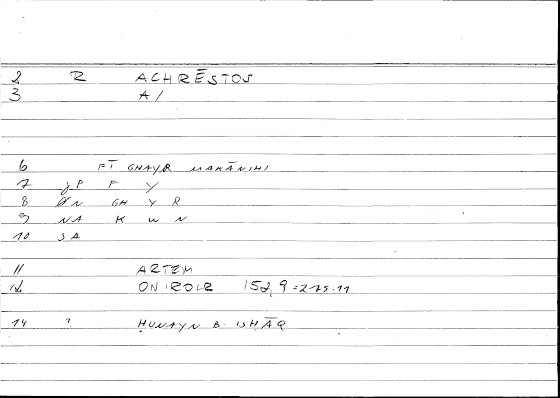 2 R ACHRĒSTOS
3 A/
6 FĪ GHAYR MAKĀNIHI
7 JP F Y
8 ØN GH Y R
9 NA K W N
10 SA
11 ARTEM
12 ONIROCR 152,9 = 275.11
14 ? ḤUNAYN B. ISḤĀQ